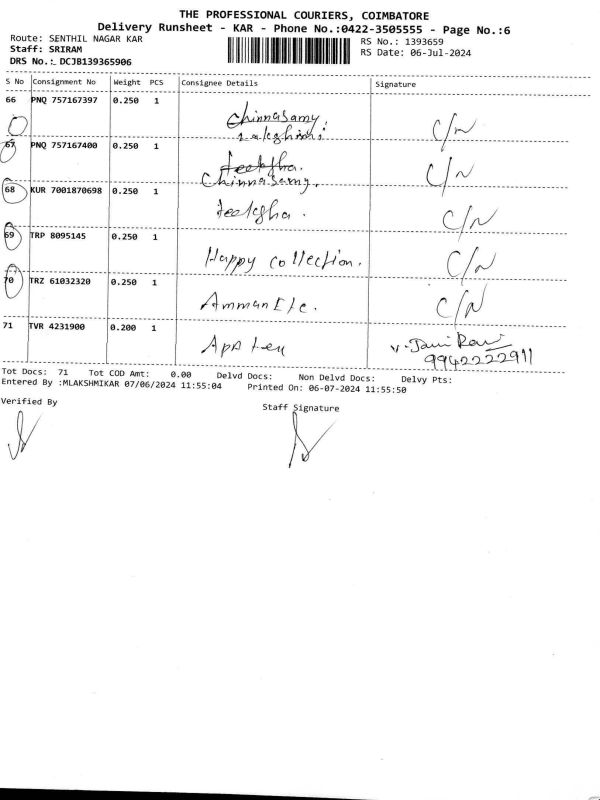 THE PROFESSIONAL COURIERS, COIMBATORE
Delivery Runsheet - KAR - Phone No.:0422-3505555 - Page No.:6
Route: SENTHIL NAGAR KAR RS No.: 1393659
Staff: SRIRAM RS Date: 06-Jul-2024
DRS No.: DCJB139365906
S No Consignment No Weight PCS Consignee Details Signature
66 PNQ 757167397 0.250 1 Chinnasamy. C/N
67 PNQ 757167400 0.250 1 C/N
Chinnasamy.
68 KUR 7001870698 0.250 1 C/N
69 TRP 8095145 0.250 1 Happy collection. C/N
70 TRZ 61032320 0.250 1 Amman Etc. C/N
71 TVR 4231900 0.200 1
9942222911
Tot Docs: 71 Tot COD Amt: 0.00 Delvd Docs: Non Delvd Docs: Delvy Pts:
Entered By :MLAKSHMIKAR 07/06/2024 11:55:04 Printed On: 06-07-2024 11:55:50
Verified By Staff Signature